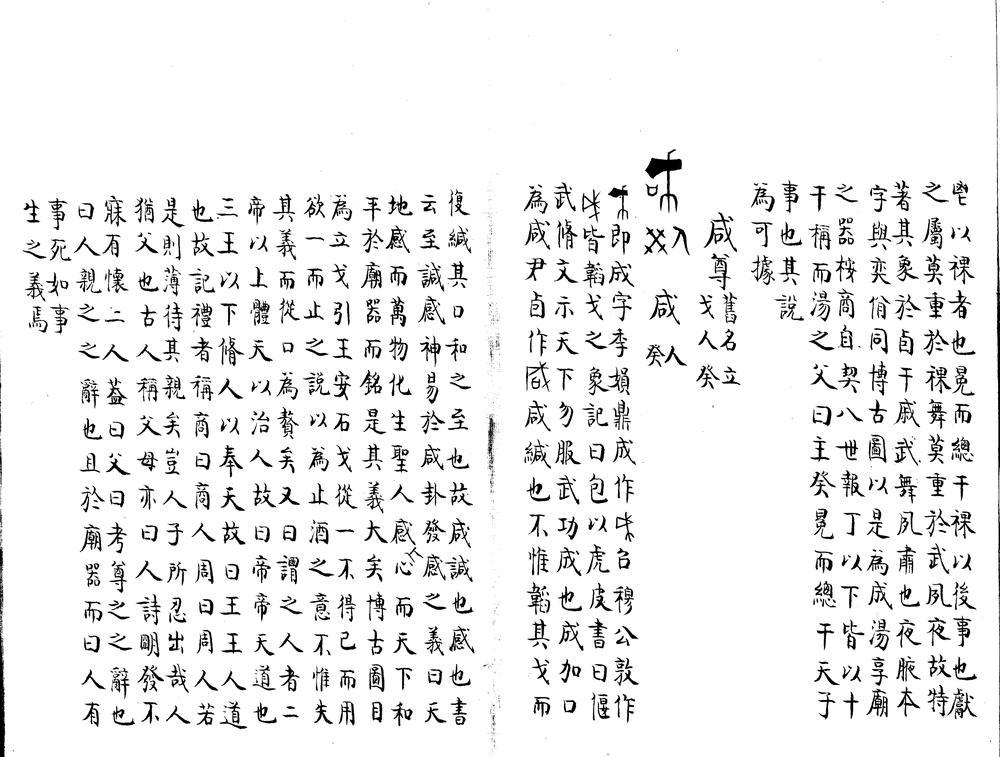 鬯以裸者也冕而總干裸以後事也獻
之屬莫重於裸舞莫重於武夙夜故特
著其象於卣干戚武舞夙肅也夜腋本
字與奕俏同博古圖以是為成湯享廟
之器桉商自契八世報丁以下皆以十
干稱而湯之父曰主癸冕而總干天子
事也其說
為可據
咸尊舊名立戈人癸
入
咸
人癸
即成字李損鼎成作召穆公敦作
皆韜戈之象記曰包以虎皮書曰偃
武脩文示天下勿服武功成也成加口
為咸尹卣作咸咸緘也不惟韜其戈而
復緘其口和之至也故咸誠也感也書
云至諴感神易於咸卦發感之義曰天
地感而萬物化生聖人感人心而天下和
平於廟器而銘是其義大矣博古圖目
為立戈引王安石戈從一不得已而用
欲一而止之說以為止酒之意不惟失
其義而從口為贅矣又曰謂之人者二
帝以上體天以治人故曰帝帝天道也
三王以下脩人以奉天故曰王王人道
也故記禮者稱商曰商人周曰周人若
是則薄待其親矣豈人子所忍出哉人
猶父也古人稱父母亦曰人詩明發不
寐有懷二人葢曰父曰考尊之之辭也
曰人親之之辭也且於廟器而曰人有
事死如事
生之義焉